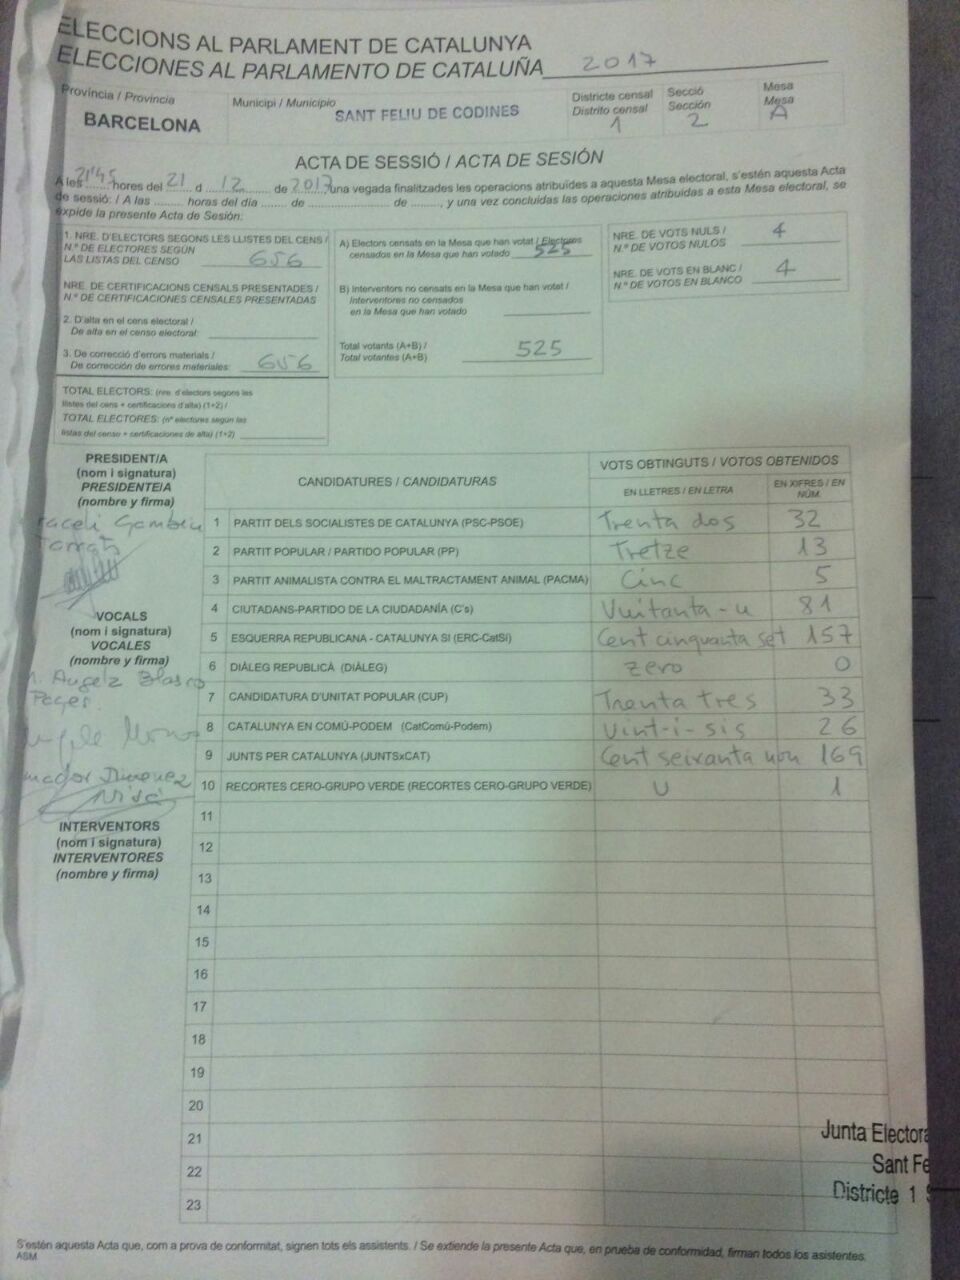 ELECCIONS AL PARLAMENT DE CATALUNYA
ELECCIONES AL PARLAMENTO DE CATALUÑA 2017
Província / Provincia
BARCELONA
Municipi / Municipio
SANT FELIU DE CODINES
Districte censal
Distrito censal
1
Secció
Sección
2
Mesa
Mesa
A
ACTA DE SESSIÓ / ACTA DE SESIÓN
A les 21'45 hores del 21 d 12 de 2017 una vegada finalitzades les operacions atribuïdes a aquesta Mesa electoral, s'estén aquesta Acta
de sessió: / A las ......... horas del día ....... de .................... de ........, y una vez concluidas las operaciones atribuidas a esta Mesa electoral, se
expide la presente Acta de Sesión:
1. NRE. D'ELECTORS SEGONS LES LLISTES DEL CENS /
N.º DE ELECTORES SEGÚN
LAS LISTAS DEL CENSO 656
NRE. DE CERTIFICACIONS CENSALS PRESENTADES /
N.º DE CERTIFICACIONES CENSALES PRESENTADAS
2. D'alta en el cens electoral /
De alta en el censo electoral:
3. De correcció d'errors materials /
De corrección de errores materiales: 656
TOTAL ELECTORS: (nre. d'electors segons les
llistes del cens + certificacions d'alta) (1+2) /
TOTAL ELECTORES: (nº electores según las
listas del censo + certificaciones de alta) (1+2)
A) Electors censats en la Mesa que han votat / Electores
censados en la Mesa que han votado 525
B) Interventors no censats en la Mesa que han votat /
Interventores no censados
en la Mesa que han votado
Total votants (A+B) /
Total votantes (A+B) 525
NRE. DE VOTS NULS /
N.º DE VOTOS NULOS 4
NRE. DE VOTS EN BLANC /
N.º DE VOTOS EN BLANCO 4
PRESIDENT/A
(nom i signatura)
PRESIDENTE/A
(nombre y firma)
VOCALS
(nom i signatura)
VOCALES
(nombre y firma)
Angelz Blasco
Pages.
Jimenez
INTERVENTORS
(nom i signatura)
INTERVENTORES
(nombre y firma)
CANDIDATURES / CANDIDATURAS
VOTS OBTINGUTS / VOTOS OBTENIDOS
EN LLETRES / EN LETRA
EN XIFRES / EN NÚM.
1 PARTIT DELS SOCIALISTES DE CATALUNYA (PSC-PSOE) Trenta dos 32
2 PARTIT POPULAR / PARTIDO POPULAR (PP) Tretze 13
3 PARTIT ANIMALISTA CONTRA EL MALTRACTAMENT ANIMAL (PACMA) Cinc 5
4 CIUTADANS-PARTIDO DE LA CIUDADANÍA (C's) Vuitanta-u 81
5 ESQUERRA REPUBLICANA - CATALUNYA SI (ERC-CatSí) Cent cinquanta set 157
6 DIÀLEG REPUBLICÀ (DIÀLEG) zero 0
7 CANDIDATURA D'UNITAT POPULAR (CUP) Trenta tres 33
8 CATALUNYA EN COMÚ-PODEM (CatComú-Podem) Vint-i-sis 26
9 JUNTS PER CATALUNYA (JUNTSxCAT) Cent seixanta nou 169
10 RECORTES CERO-GRUPO VERDE (RECORTES CERO-GRUPO VERDE) U 1
11
12
13
14
15
16
17
18
19
20
21
22
23
Junta Electora
Sant Fe
Districte 1 S
S'estén aquesta Acta que, com a prova de conformitat, signen tots els assistents. / Se extiende la presente Acta que, en prueba de conformidad, firman todos los asistentes.
ASM